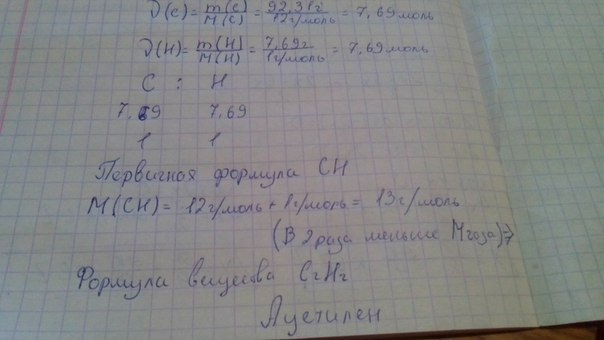 ν(C) = m(C)/M(C) = 92,31г/12г/моль = 7,69моль
ν(H) = m(H)/M(H) = 7,69г/1г/моль = 7,69моль
C : H
7,69 7,69
1 1
Первичная формула CH
M(CH) = 12г/моль + 1г/моль = 13г/моль
(В 2 раза меньше Mгаза)⇒
Формула вещества C₂H₂
Ацетилен